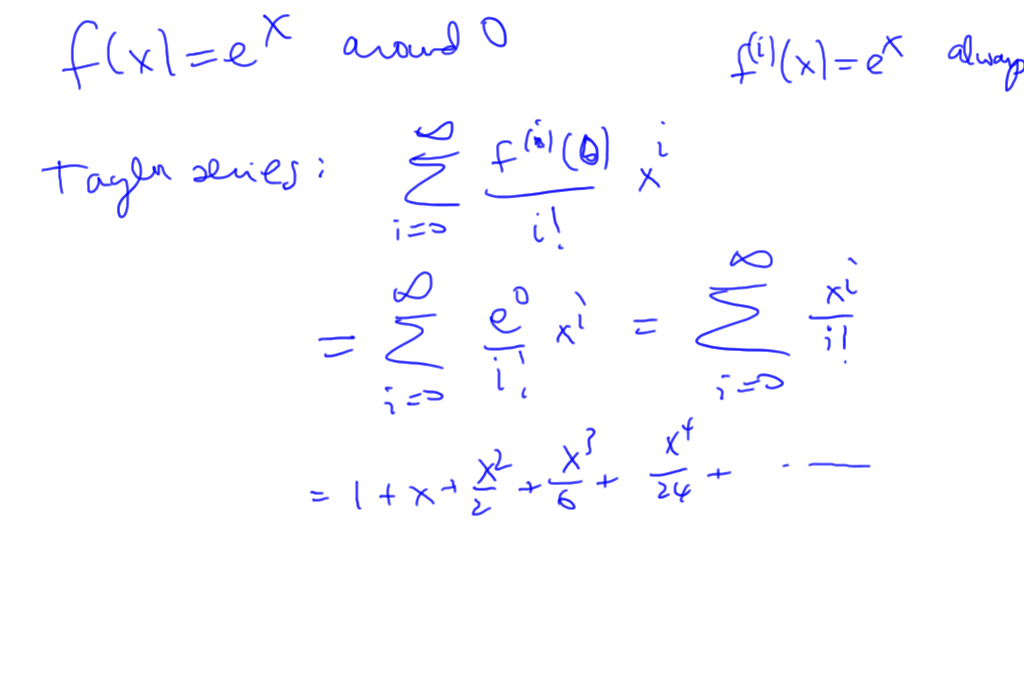 f(x)=e^x around 0 f^(i)(x)=e^x always
Taylor series: ∑_{i=0}^{∞} f^(i)(0)/i! x^i
= ∑_{i=0}^{∞} e^0/i! x^i = ∑_{i=0}^{∞} x^i/i!
= 1 + x + x^2/2 + x^3/6 + x^4/24 + · —